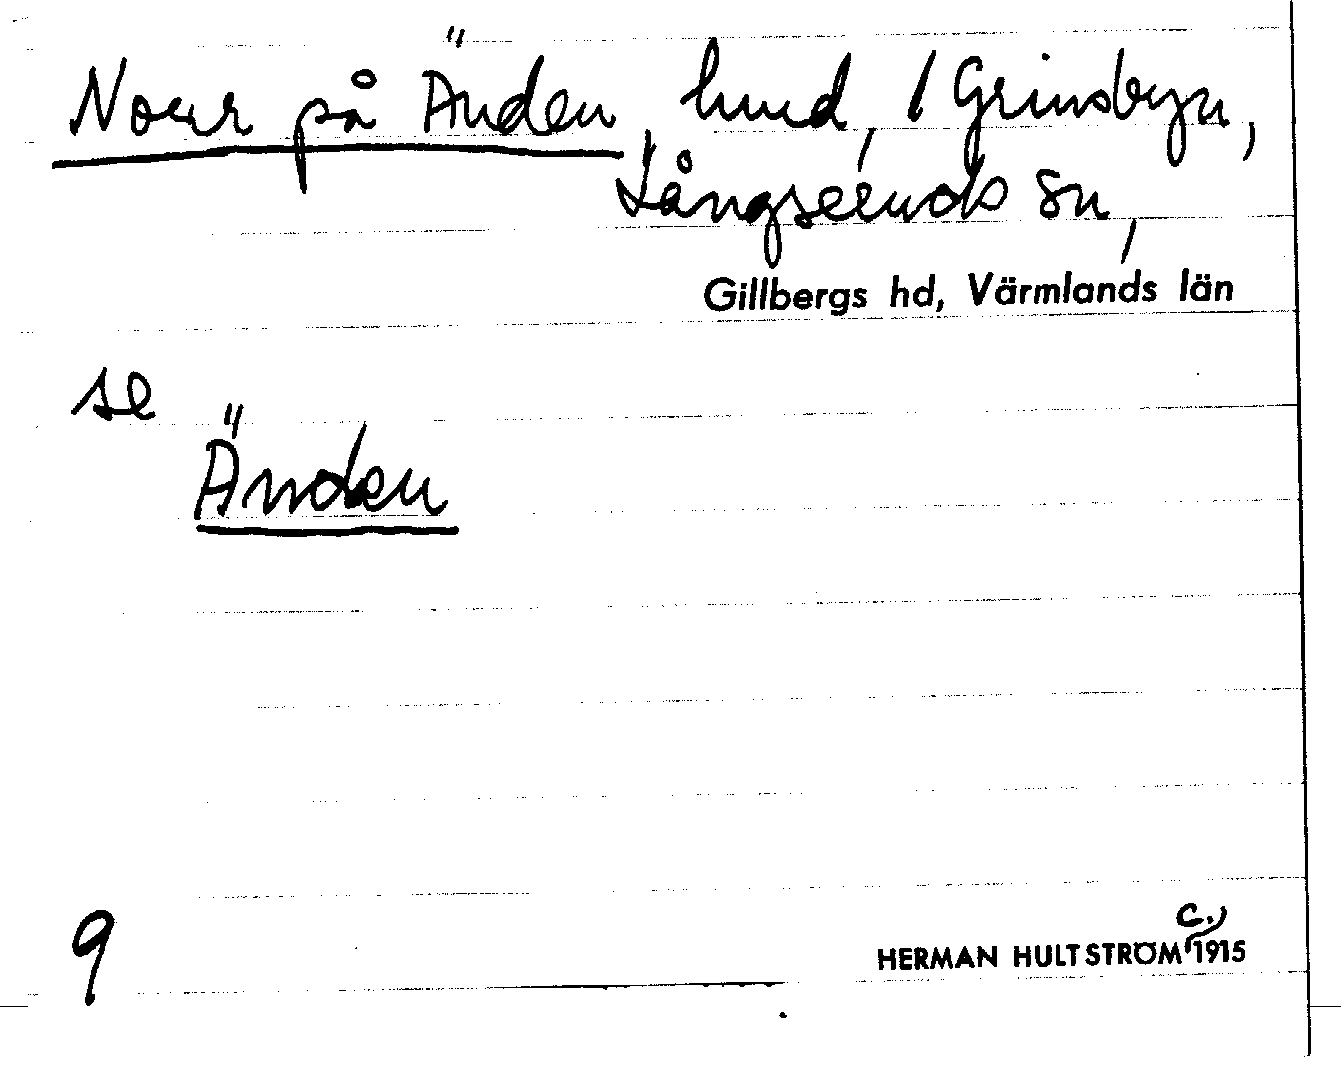 Norr på Änden, lund, / Grinsbyn,
Långseruds sn,
Gillbergs hd, Värmlands län
se
Änden
9
c.,
HERMAN HULTSTRÖM 1915